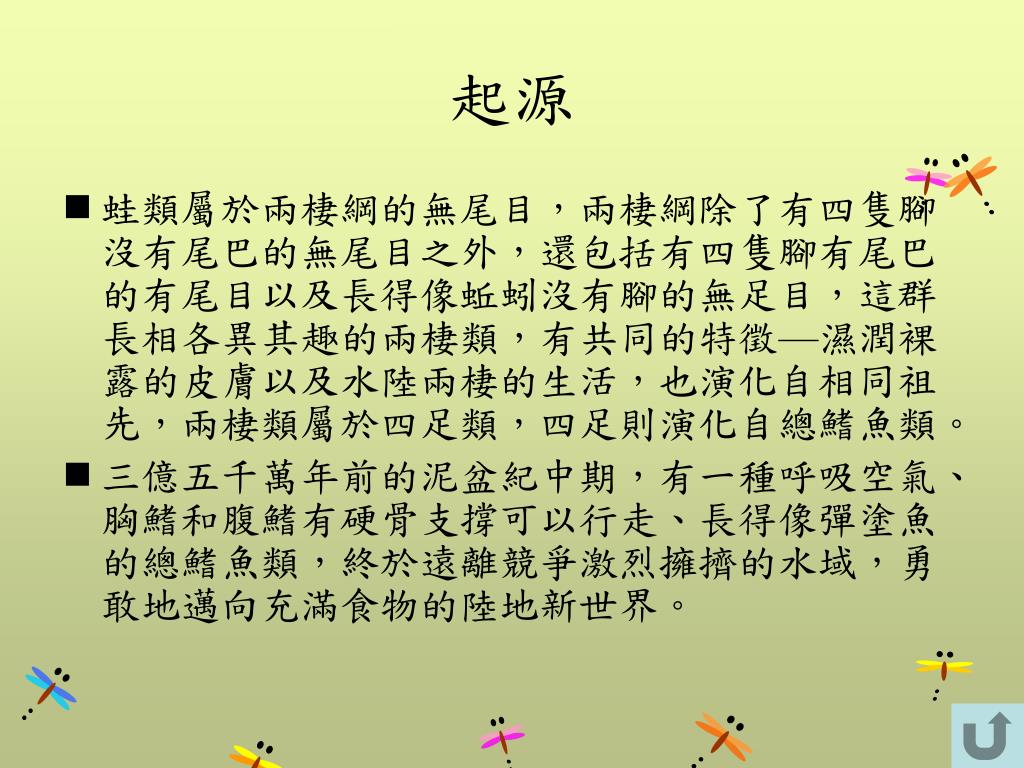 起源
■ 蛙類屬於兩棲綱的無尾目，兩棲綱除了有四隻腳
沒有尾巴的無尾目之外，還包括有四隻腳有尾巴
的有尾目以及長得像蚯蚓沒有腳的無足目，這群
長相各異其趣的兩棲類，有共同的特徵—濕潤裸
露的皮膚以及水陸兩棲的生活，也演化自相同祖
先，兩棲類屬於四足類，四足則演化自總鰭魚類。
■ 三億五千萬年前的泥盆紀中期，有一種呼吸空氣、
胸鰭和腹鰭有硬骨支撐可以行走、長得像彈塗魚
的總鰭魚類，終於遠離競爭激烈擁擠的水域，勇
敢地邁向充滿食物的陸地新世界。